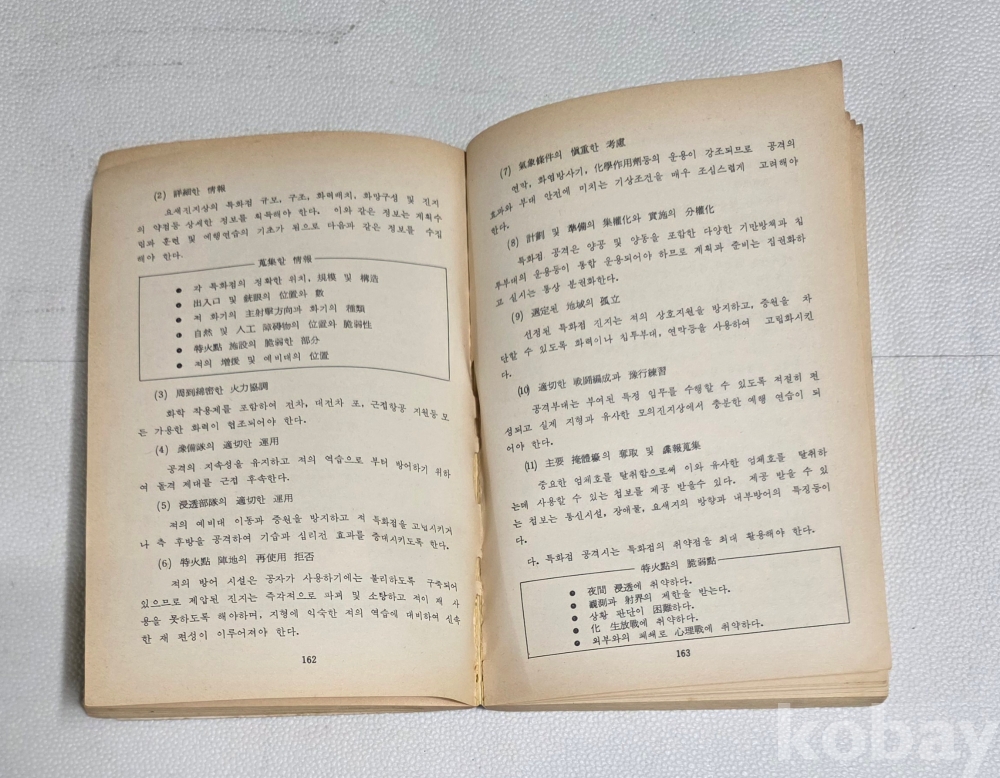 (2) 詳細한 情報
요새진지상의 특화점 규모, 구조, 화력배치, 화망구성 및 진지
의 약점등 상세한 정보를 획득해야 한다. 이와 같은 정보는 계획수
립과 훈련 및 예행연습의 기초가 됨으로 다음과 같은 정보를 수집
해야 한다.
蒐集한 情報
● 각 특화점의 정확한 위치, 規模 및 構造
● 出入口 및 銃眼의 位置와 數
● 적 화기의 主射擊方向과 화기의 種類
● 自然 및 人工 障碍物의 位置와 脆弱性
● 特火點 施設의 脆弱한 部分
● 적의 增援 및 예비대의 位置
(3) 周到綿密한 火力協調
화학 작용제를 포함하여 전차, 대전차 포, 근접항공 지원등 모
든 가용한 화력이 협조되어야 한다.
(4) 豫備隊의 適切한 運用
공격의 지속성을 유지하고 적의 역습으로 부터 방어하기 위하
여 돌격 제대를 근접 후속한다.
(5) 浸透部隊의 適切한 運用
적의 예비대 이동과 증원을 방지하고 적 특화점을 고립시키거
나 측 후방을 공격하여 기습과 심리전 효과를 증대시키도록 한다.
(6) 特火點 陣地의 再使用 拒否
적의 방어 시설은 공자가 사용하기에는 불리하도록 구축되어
있으므로 제압된 진지는 즉각적으로 파괴 및 소탕하고 적이 재 사
용을 못하도록 해야하며, 지형에 익숙한 적의 역습에 대비하여 신속
한 재 편성이 이루어져야 한다.
162
(7) 氣象條件의 愼重한 考慮
연막, 화염방사기, 化學作用劑등의 운용이 강조되므로 공격의
효과와 부대 안전에 미치는 기상조건을 매우 조심스럽게 고려해야
한다.
(8) 計劃 및 準備의 集權化와 實施의 分權化
특화점 공격은 양공 및 양동을 포함한 다양한 기만방책과 침
투부대의 운용등이 통합 운용되어야 하므로 계획과 준비는 집권화하
고 실시는 통상 분권화한다.
(9) 選定된 地域의 孤立
선정된 특화점 진지는 적의 상호지원을 방지하고, 증원을 차
단할 수 있도록 화력이나 침투부대, 연막등을 사용하여 고립화시킨
다.
(10) 適切한 戰鬪編成과 豫行練習
공격부대는 부여된 특정 임무를 수행할 수 있도록 적절히 편
성되고 실제 지형과 유사한 모의진지상에서 충분한 예행 연습이 되
어야 한다.
(11) 主要 掩體壕의 奪取 및 諜報蒐集
중요한 엄체호를 탈취함으로써 이와 유사한 엄체호를 탈취하
는데 사용할 수 있는 첩보를 제공 받을수 있다. 제공 받을 수 있
는 첩보는 통신시설, 장애물, 요새지의 방향과 내부방어의 특징등이
다.
다. 특화점 공격시는 특화점의 취약점을 최대 활용해야 한다.
特火點의 脆弱點
● 夜間 浸透에 취약하다.
● 觀測과 射界의 제한을 받는다.
● 상황 판단이 困難하다.
● 化 生放戰에 취약하다.
● 외부와의 폐쇄로 心理戰에 취약하다.
163
kobay